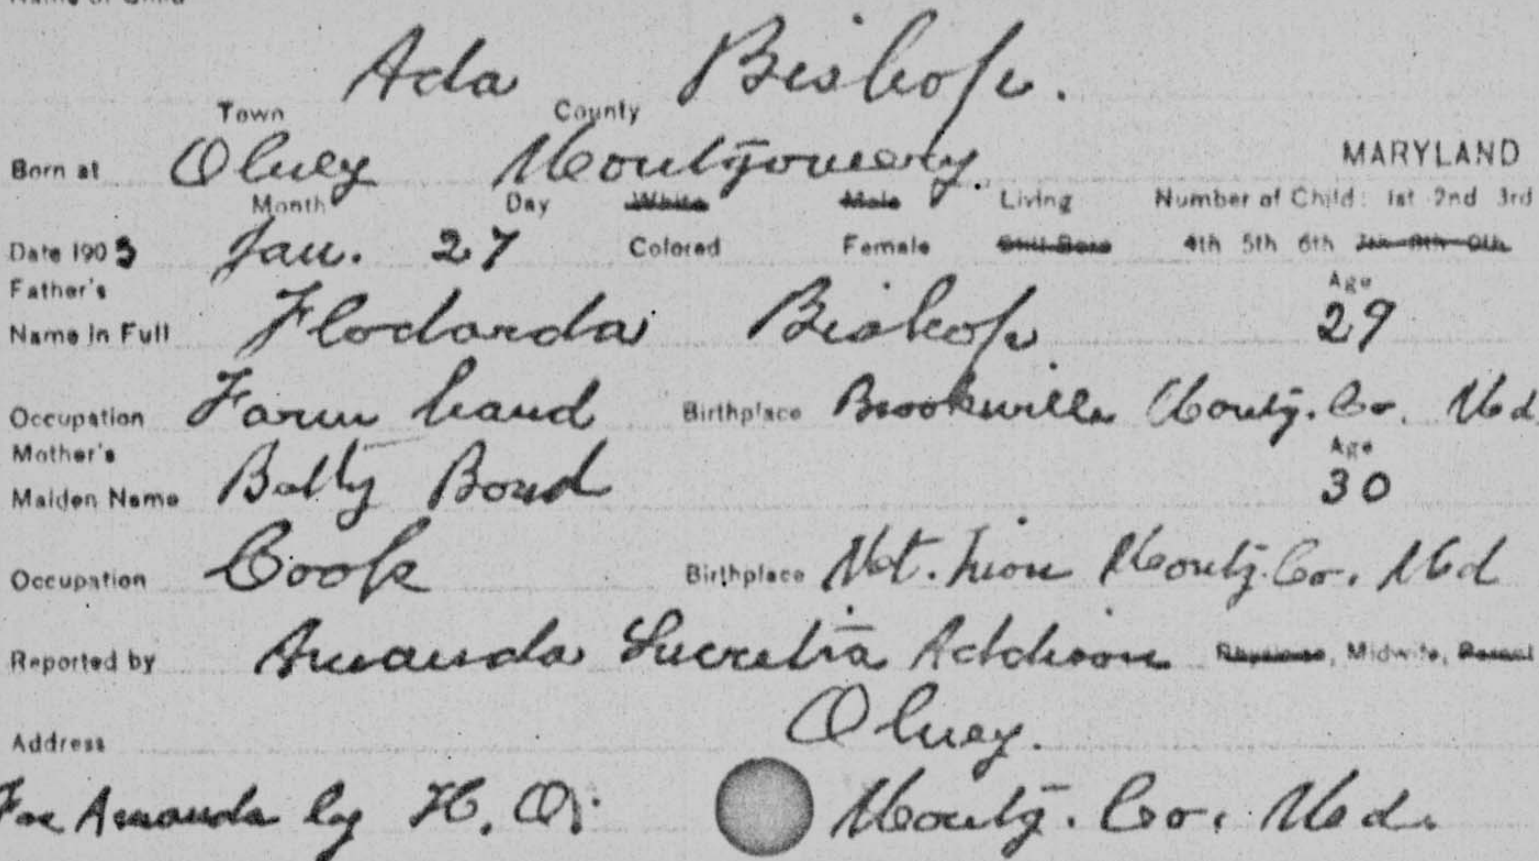 Ada Bishop.
Town County
Born at Olney Montgomery. MARYLAND
Month Day White Male Living Number of Child: 1st 2nd 3rd
Date 1903 Jan. 27 Colored Female Still Born 4th 5th 6th 7th 8th 9th
Father's Age
Name in Full Flodarda Bishop 29
Occupation Farm hand Birthplace Brookville Montg. Co. Md.
Mother's Age
Maiden Name Batty Bond 30
Occupation Cook Birthplace Mt. Zion Montg. Co. Md
Reported by Amanda Lucretia Addison Physician, Midwife, Parent
Address Olney.
For Amanda by H. O. Montg. Co. Md.